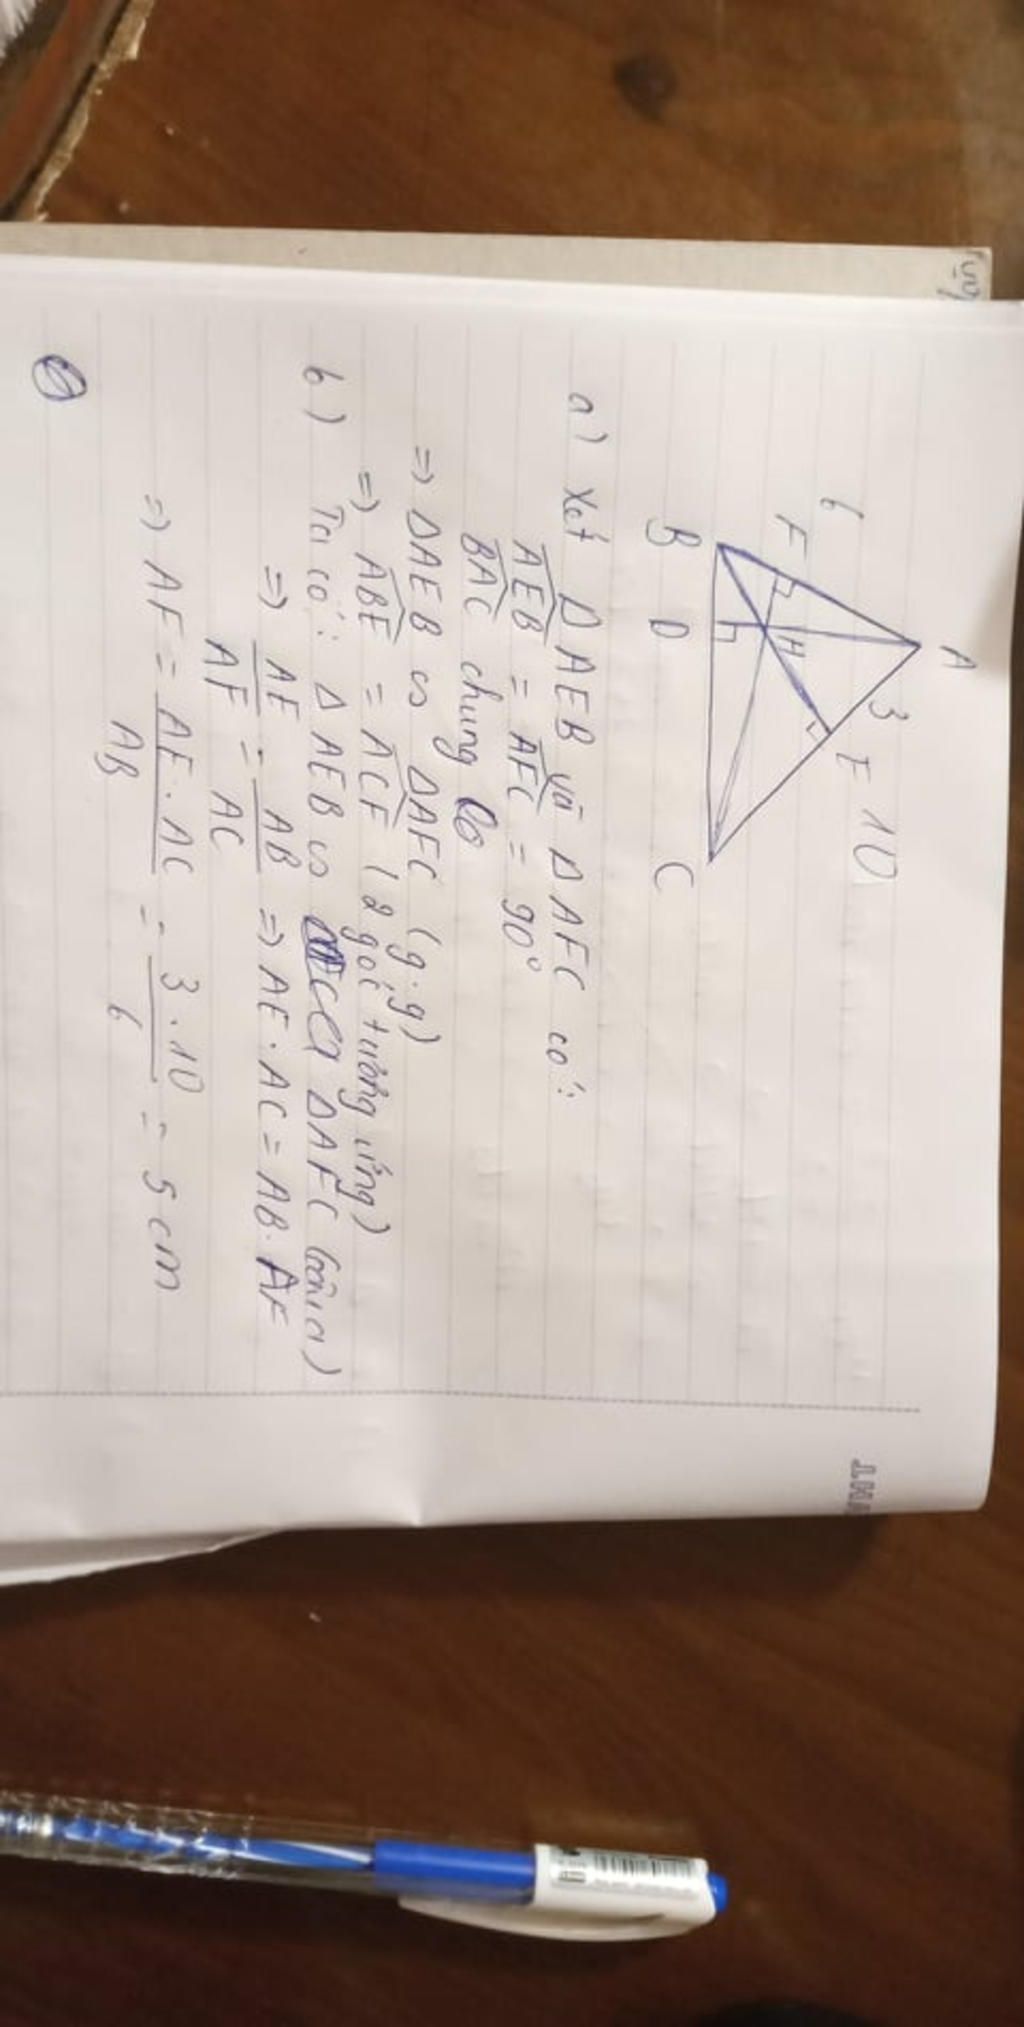 A
6
3
F
E
10
H
B
D
C
a) Xét ΔAEB và ΔAFC có:
AEB = AFC = 90°
BAC chung
=> ΔAEB ∽ ΔAFC (g.g)
=> ABE = ACF (2 góc tương ứng)
b) Ta có: ΔAEB ∽ ΔAFC (câu a)
=> AE/AF = AB/AC => AE.AC = AB.AF
=> AF = AE.AC/AB = 3.10/6 = 5 cm